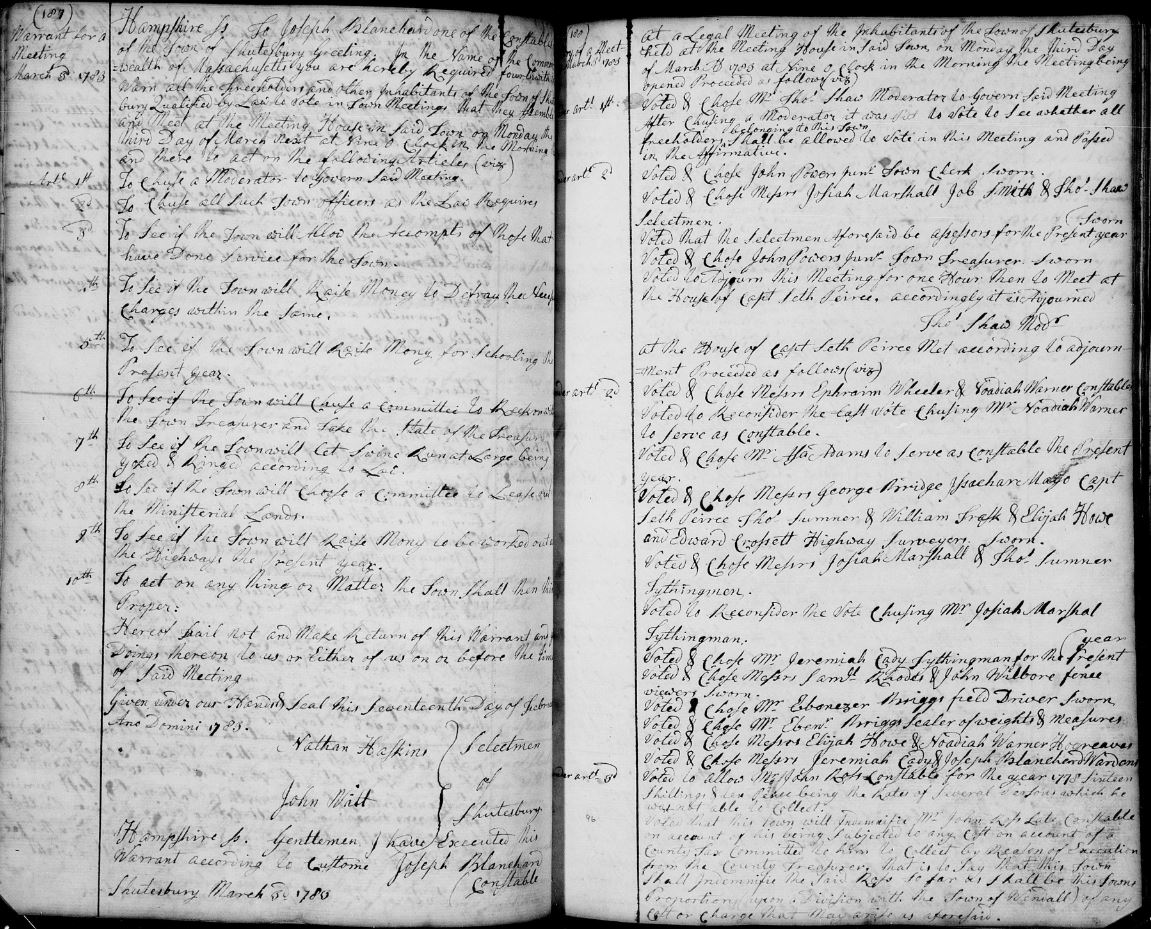 (187)
Warrant for a
Meeting
March 3d 1783
Hampshire Ss To Joseph Blanchard one of the Constables
of the Town of Shutesbury Greeting. In the Name of the Common
=wealth of Massachusetts you are hereby Required forthwith
Warn all the freeholders and other Inhabitants of the Town of Shu
bury Qualified by Law to Vote in Town Meeting, that they Assemble
and Meet at the Meeting House in Said Town on Monday the
third Day of March Next at Nine o Clock in the Morning
and there to act on the following Articles (viz)
Artc 1st To Chuse a Moderator to Govern Said Meeting.
2d To Chuse all Such Town officers as the Law Requires
3d To See if the Town will Alow the Accompts of those that
have Done Service for the Town.
4th To See if the Town will Raise Money to Defray the
Charges within the Same.
5th To See if the Town will Raise Mony for Schooling the
Present year.
6th To See if the Town will Chuse a Committee to Reckon with
the Town Treasurer and take the State of the Treasury
7th To See if the Town will Let Swine Run at Large being
yoked & Ringed according to Law.
8th To See if the Town will Choose a Committee to Lease out
the Ministerial Lands.
9th To See if the Town will Raise Mony to be worked out
the Highways the Present year.
10th To act on any thing or Matter the Town Shall then
Proper:
Hereof fail not and Make Return of this Warrant and
Doings thereon to us or Either of us on or before the time
of Said Meeting
Given under our Hands & Seal this Seventeenth Day of Febru
Ano Domini 1783.
Nathan Haskins
John Wait
Selectmen
of
Shutesbury
Hampshire Ss. Gentlemen I have Executed this
Warrant according to Custome Joseph Blanchard
Constable
Shutesbury March 3d 1783
March 3d 1783
at a Legal Meeting of the Inhabitants of the Town of Shutesbury
held at the Meeting House in Said Town on Monday the third Day
of March AD 1783 at Nine o Clock in the Morning the Meeting being
opened Proceeded as follows (viz)
art. 1st Voted & Chose Mr Thos Shaw Moderator to Govern Said Meeting
After Chusing a Moderator it was Put to Vote to See whether all
belonging to this Town
freeholders, Shall be allowed to Vote in this Meeting and Passed
in the Affirmative.
art. 2d Voted & Chose John Powers junr Town Clerk Sworn.
Voted & Chose Messrs Josiah Marshall Job Smith & Thos Shaw
Selectmen.
(Sworn
Voted that the Selectmen Aforesaid be assessors for the Present year
Voted & Chose John Powers Junr Town Treasurer Sworn
Voted to Adjourn this Meeting for one Hour then to Meet at
the House of Capt Seth Peirce. accordingly it is Adjourned
Thos Shaw Modr
at the House of Capt Seth Peirce Met according to adjourn-
-ment Proceeded as follows (viz)
art. 2d Voted & Chose Messrs Ephraim Wheeler & Noadiah Warner Constables
Voted to Reconsider the Last Vote Chusing Mr Noadiah Warner
to Serve as Constable.
Voted & Chose Mr Asa Adams to Serve as Constable the Present
year.
Voted & Chose Messrs George Isachar Mayo Capt
Seth Peirce Thos Sumner & William Frask & Elijah Howe
and Edward Crossett Highway Surveyers. Sworn.
Voted & Chose Messrs Josiah Marshall & Thos Sumner
Tythingmen.
Voted to Reconsider the Vote Chusing Mr Josiah Marshal
Tythingman.
(year
Voted & Chose Mr Jeremiah Cady Tythingman for the Present
Voted & Chose Messrs Samll Rhodes & John Wilbore fence
viewers Sworn.
Voted & Chose Mr Ebenezer Briggs field Driver Sworn
Voted & Chose Mr Ebenr Briggs Sealer of weights & Measures
Voted & Chose Messrs Elijah Howe & Noadiah Warner Hogreaves
Voted & Chose Messrs Jeremiah Cady & Joseph Blanchard Wardons
art. 3d Voted to allow Mr John Ross Constable for the year 1778 Sixteen
Shillings & Six Pence being the Rates of Several Persons which he
was not able to Collect.
Voted that this Town will Indemnifie Mr John Ross Late Constable
on account of his being Subjected to any Cost on account of a
County Tax Committed to him to Collect by Reason of Execution
from the County Treasurer. that is to Say that this Town
Shall Indemnifie the Said Ross So far as Shall be this Towns
Proportion (upon a Division with the Town of Wendall) of any
Cost or Charge that May arise as aforesaid.
96